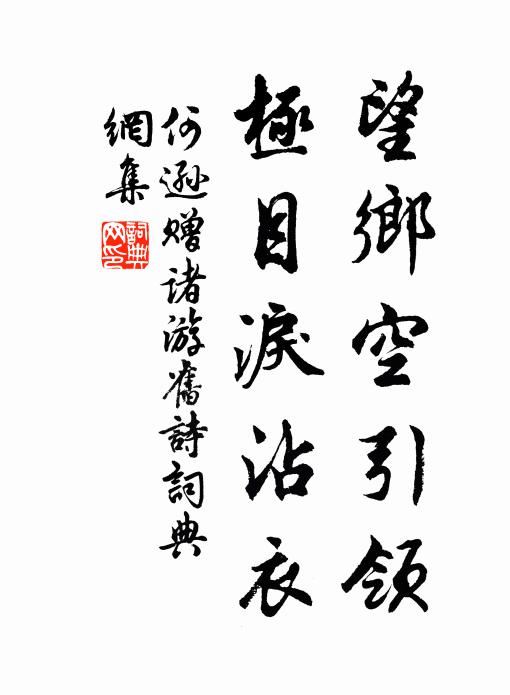 望鄉空引領
極目淚沾衣
何遜贈諸游舊詩詞典
網集
詞典網印